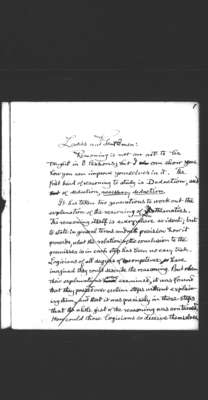 Ladies and Gentlemen:
Reasoning is not an art to be
taught in 8 lessons; but I can show you
how you can improve yourselves in it. The
first kind of reasoning to study is Deduction, and
of deduction, necessary deduction.
It has taken two generations to work out the
explanation of the reasoning of mathematics.
The reasoning itself is evident; but
to state in general terms and with precision how it
proceeds, what the relation of the conclusion to the
premisses is in each step has been no easy task.
Logicians of all degrees of competence have
imagined they could describe the reasoning. But when
their explanations were examined, it was found
that they passed over certain steps without explan-
ation and that it was precisely in those steps
that the whole gist of the reasoning was contained.
How could those Logicians so deceive themselves